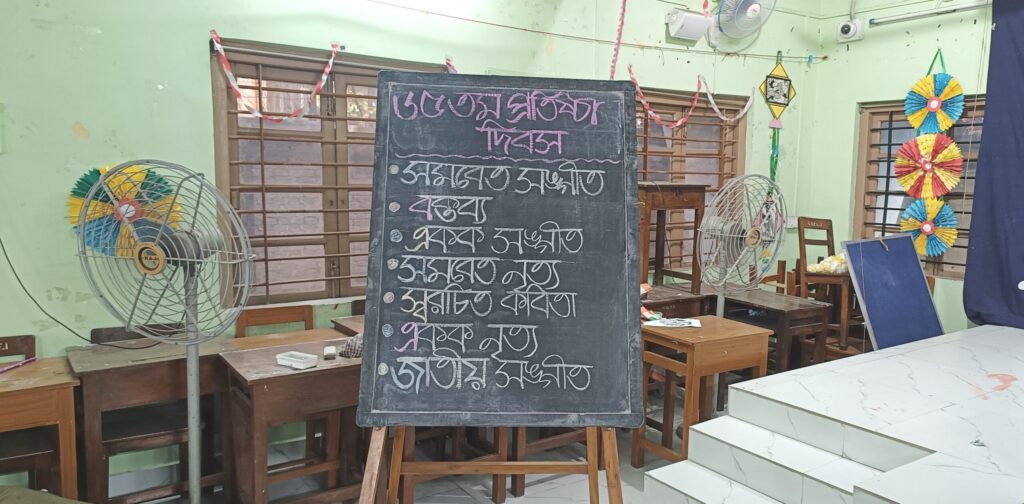 ৬৫তম প্রতিষ্ঠা
দিবস
সমবেত সঙ্গীত
বক্তব্য
একক সঙ্গীত
সমবেত নৃত্য
স্বরচিত কবিতা
একক নৃত্য
জাতীয় সঙ্গীত